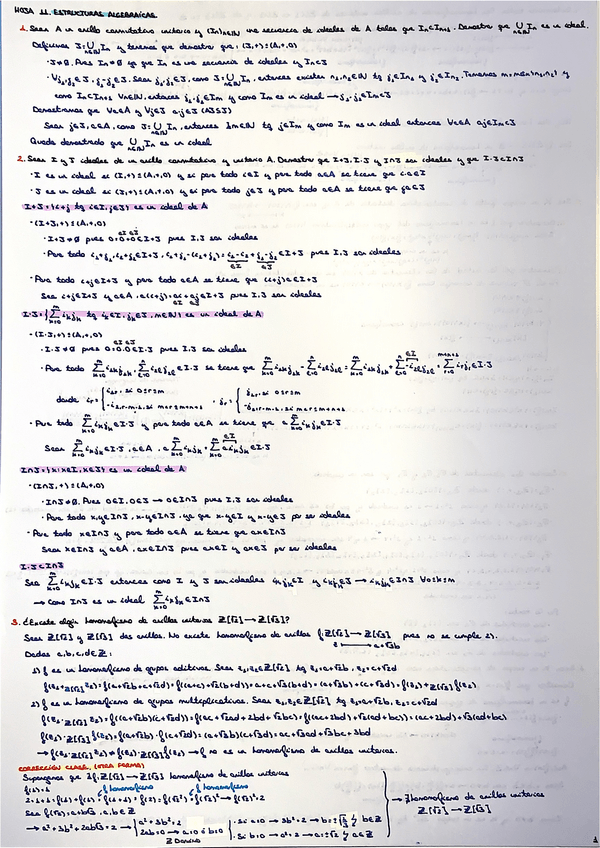 HOJA 11. ESTRUCTURAS ALGEBRAICAS
1. Sean A un anillo conmutativo unitario y (In)n∈ℕ una secuencia de ideales de A tales que In⊂In+1. Demostrar que ⋃n∈ℕ In es un ideal.
Definimos J=⋃n∈ℕ In y tenemos que demostrar que: (J,+)≤(A,+,0)
· J≠∅. Pues In≠∅ ya que In es una secuencia de ideales y In⊂J
como In⊂In+1 ∀n∈ℕ, entonces j1,j2∈Im y como Im es un ideal → j1-j2∈Im⊂J
Demostramos que ∀a∈A y ∀j∈J a·j∈J (AJ⊆J)
Sean j∈J, a∈A, como J=⋃n∈ℕ In, entonces ∃m∈ℕ tq j∈Im y como Im es un ideal entonces ∀a∈A a·j∈Im⊂J
Queda demostrado que ⋃n∈ℕ In es un ideal
2. Sean I y J ideales de un anillo conmutativo y unitario A. Demostrar que I+J, I·J y I∩J son ideales y que I·J⊂I∩J
· I es un ideal si (I,+)≤(A,+,0) y si para todo i∈I y para todo a∈A se tiene que i·a∈I
· J es un ideal si (J,+)≤(A,+,0) y si para todo j∈J y para todo a∈A se tiene que ja∈J
I+J={i+j tq i∈I, j∈J} es un ideal de A
· (I+J,+)≤(A,+,0)
· I+J≠∅ pues 0=0+0∈I+J pues I,J son ideales
· Para todo i1+j1, i2+j2∈I+J, i1+j1-(i2+j2)=i1-i2+j1-j2∈I+J pues I,J son ideales
· Para todo i+j∈I+J y para todo a∈A se tiene que (i+j)a∈I+J
Sea i+j∈I+J y a∈A, a(i+j)=ai+aj∈I+J pues I,J son ideales
I·J={∑k=0 m ikjk tq ik∈I, jk∈J, m∈ℕ} es un ideal de A
· (I·J,+)≤(A,+,0)
· I·J≠∅ pues 0=0·0∈I·J pues I,J son ideales
· Para todo ∑ i1kj1k, ∑ i2ℓj2ℓ∈I·J se tiene que ∑ i1kj1k - ∑ i2ℓj2ℓ = ∑ i1kj1k + ∑ -i2ℓj2ℓ = ∑ irjr∈I·J
· Para todo ∑ ikjk∈I·J y para todo a∈A se tiene que a∑ ikjk∈I·J
Sean ∑ ikjk∈I·J, a∈A, a∑ ikjk = ∑ aikjk∈I·J
I∩J={x: x∈I, x∈J} es un ideal de A
· (I∩J,+)≤(A,+,0)
· I∩J≠∅. Pues 0∈I, 0∈J → 0∈I∩J pues I,J son ideales
· Para todo x,y∈I∩J, x-y∈I∩J, ya que x-y∈I y x-y∈J por ser ideales
· Para todo x∈I∩J y para todo a∈A se tiene que ax∈I∩J
Sean x∈I∩J y a∈A, ax∈I∩J pues ax∈I y ax∈J por ser ideales
I·J⊂I∩J
Sea ∑ ikjk∈I·J entonces como I y J son ideales ikjk∈I y ikjk∈J → ikjk∈I∩J ∀0≤k≤m
→ Como I∩J es un ideal ∑ ikjk∈I∩J
3. ¿Existe algún homomorfismo de anillos unitarios ℤ[√2]→ℤ[√3]?
Sean ℤ[√2] y ℤ[√3] dos anillos. No existe homomorfismo de anillos f:ℤ[√2]→ℤ[√3] pues no se cumple 2).
Dados a,b,c,d∈ℤ:
1) f es un homomorfismo de grupos aditivos. Sean z1,z2∈ℤ[√2] tq z1=a+√2b, z2=c+√2d
2) f es un homomorfismo de grupos multiplicativos. Sean z1,z2∈ℤ[√2] tq z1=a+√2b, z2=c+√2d
f(z1)·ℤ[√3]f(z2)=f(a+√2b)·f(c+√2d)=(a+√3b)(c+√3d)=ac+√3ad+√3bc+3bd
→ f(z1·z2)≠f(z1)·f(z2) → f no es un homomorfismo de anillos unitarios.
CORRECCIÓN CLASE. (OTRA FORMA)
Supongamos que ∃f:ℤ[√2]→ℤ[√3] homomorfismo de anillos unitarios
f(1)=1 f homomorfismo f homomorfismo
2=1+1=f(1)+f(1)=f(1+1)=f(2)=f(√2²)=f(√2)²→f(√2)²=2
Sea f(√2)=a+b√3, a,b∈ℤ
→ a²+3b²+2ab√3=2 → a²+3b²=2
2ab=0 → a=0 ó b=0
ℤ Dominio
· Si a=0 → 3b²=2 → b=±√2/3 ↯ b∈ℤ
· Si b=0 → a²=2 → a=±√2 ↯ a∈ℤ
→ ∄ homomorfismo de anillos unitarios
ℤ[√2]→ℤ[√3]